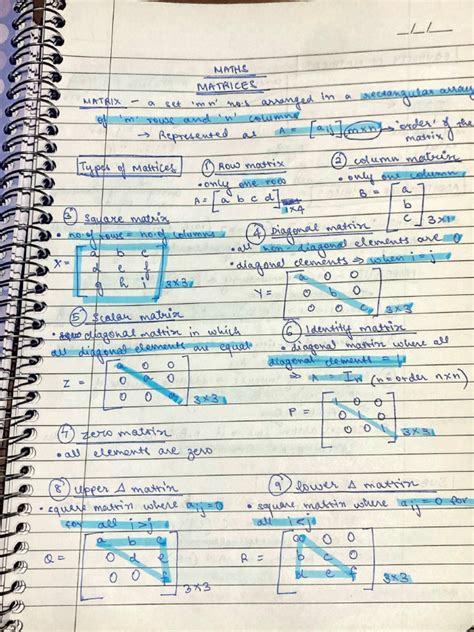 MATHS
MATRICES
MATRIX - a set 'mn' no.s arranged in a rectangular array
of 'm' rows and 'n' columns
→ Represented as A = [aij] m×n → 'order' of the matrix
Types of Matrices
① Row matrix
• only one row
A = [a b c d] 1×4
② column matrix
• only one column
B = [a
b
c] 3×1
③ Square matrix
• no. of rows = no. of columns
X = [a b c
d e f
g h i] 3×3
④ Diagonal matrix
• all non-diagonal elements are 0
• diagonal elements ⇒ when i = j
Y = [a 0 0
0 b 0
0 0 c] 3×3
⑤ Scalar matrix
• diagonal matrix in which
all diagonal elements are equal
Z = [a 0 0
0 a 0
0 0 a] 3×3
⑥ Identity matrix
• diagonal matrix where all
diagonal elements = 1
⇒ A = In (n = order n×n)
P = [1 0 0
0 1 0
0 0 1] 3×3
⑦ zero matrix
• all elements are zero
⑧ upper Δ matrix
• square matrix where aij = 0
for all i>j
Q = [a b c
0 d e
0 0 f] 3×3
⑨ lower Δ matrix
• square matrix where aij = 0 for
all i<j
R = [a 0 0
b c 0
d e f] 3×3